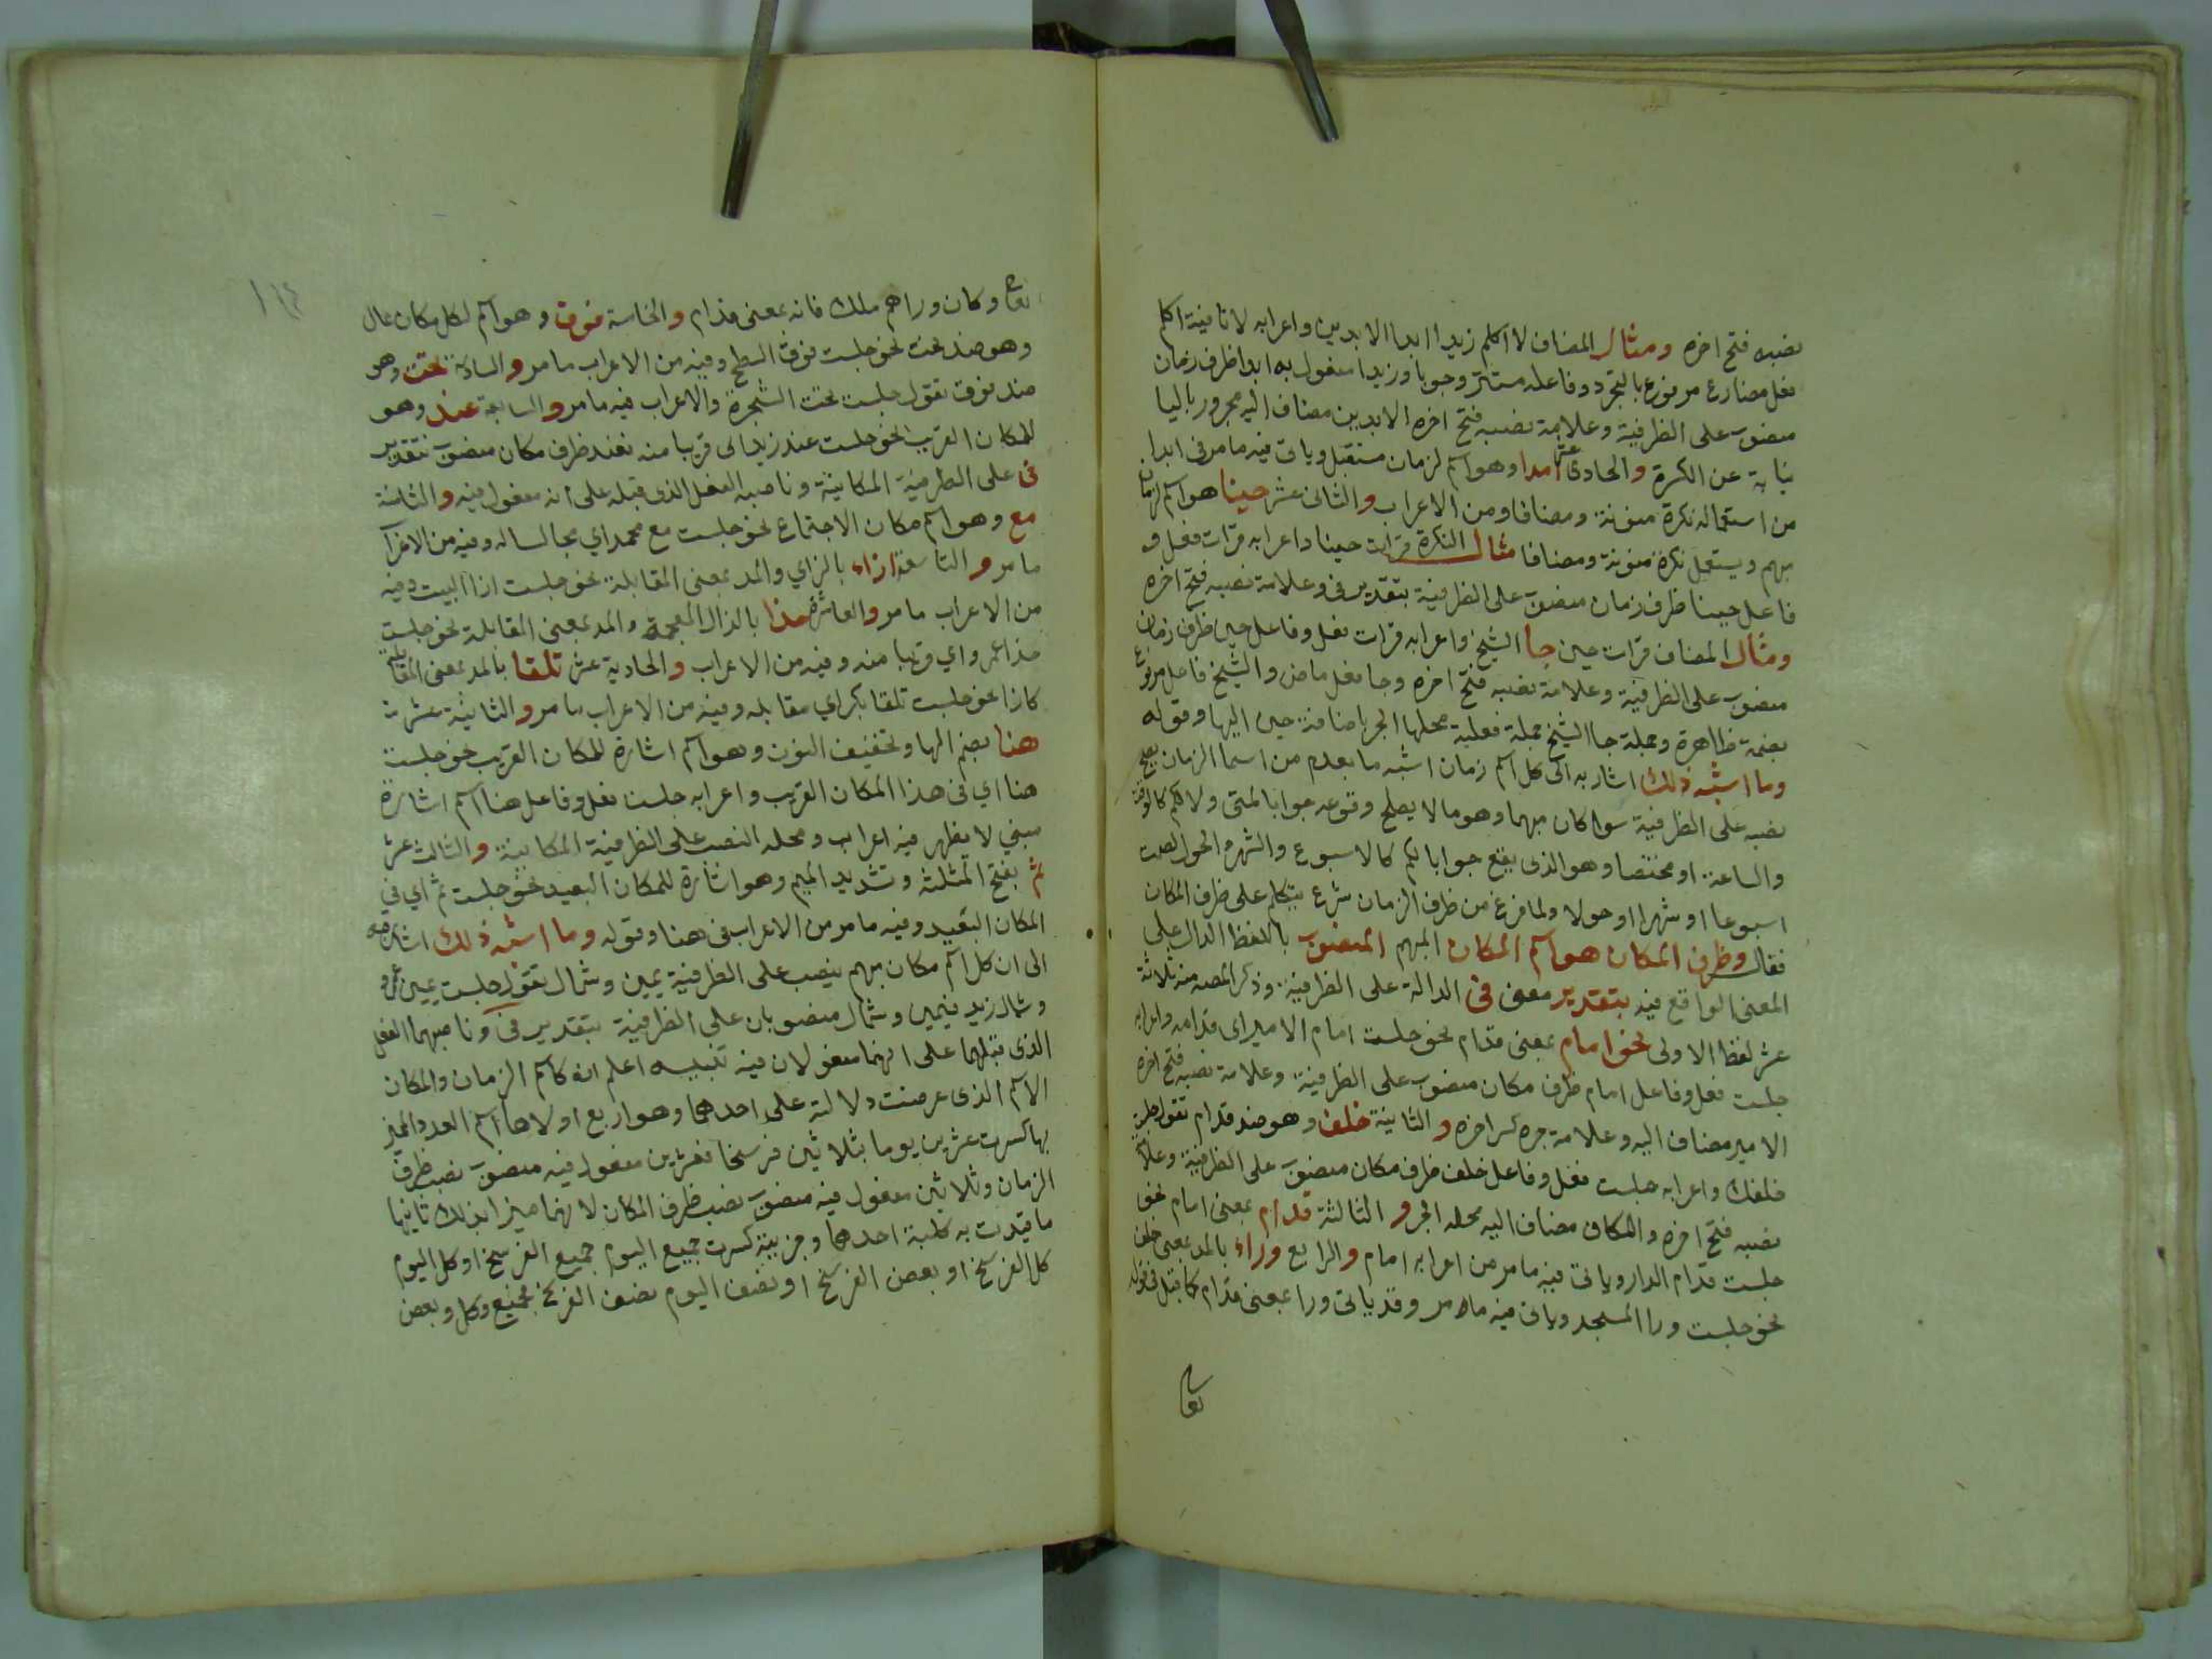 نصبه فتح اخره ومثال المضاف لا اكلم زيدا ابد الابدين واعرابه لا نافية اكلم
فعل مضارع مرفوع بالتجرد وفاعله مستتر وجوبا وزيدا مفعول به ابدا ظرف زمان
منصوب على الظرفية وعلامة نصبه فتح اخره الابدين مضاف اليه مجرور باليا
نيابة عن الكسرة والحادي عشر امدا وهو اسم لزمان مستقبل وياتي فيه ما مر في ابدا
من استعماله نكرة منونة ومضافا ومن الاعراب والثاني عشر حينا هو اسم لزمان
مبهم ويستعمل نكرة منونة ومضافا مثال النكرة قرات حينا واعرابه قرات فعل و
فاعل حينا ظرف زمان منصوب على الظرفية بتقدير في وعلامة نصبه فتح اخره
ومثال المضاف قرات حين جا الشيخ واعرابه قرات فعل وفاعل حين ظرف زمان
منصوب على الظرفية وعلامة نصبه فتح اخره وجا فعل ماض والشيخ فاعل مرفوع
بضمة ظاهرة وجملة جا الشيخ جملة فعلية محلها الجر باضافة حين اليها وقوله
وما اشبه ذلك اشار به الى كل اسم زمان اشبه ما تقدم من اسما الزمان يصح
نصبه على الظرفية سوا كان مبهما وهو ما لا يصلح وقوعه جوابا لمتى ولا لكم كالوقت
والساعة او مختصا وهو الذي يقع جوابا لكم كالاسبوع والشهر والحول كصمت
اسبوعا او شهرا او حولا ولما فرغ من ظرف الزمان شرع يتكلم على ظرف المكان
فقال وظرف المكان هو اسم المكان المبهم المنصوب باللفظ الدال على
المعنى الواقع فيه بتقدير معنى في الدالة على الظرفية وذكر المص منه ثلاثة
عشر لفظا الاولى نحو امام بمعنى قدام نحو جلست امام الامير اي قدامه واعرابه
جلست فعل وفاعل امام ظرف مكان منصوب على الظرفية وعلامة نصبه فتح اخره
الامير مضاف اليه وعلامة جره كسر اخره والثانية خلف وهو ضد قدام تقول جلست
خلفك واعرابه جلست فعل وفاعل خلف ظرف مكان منصوب على الظرفية وعلامة
نصبه فتح اخره والكاف مضاف اليه محله الجر والثالثة قدام بمعنى امام نحو
جلست قدام الدار وياتي فيه ما مر من اعرابه امام والرابع وراء بالمد بمعنى خلف
نحو جلست ورا المسجد وياتي فيه ما مر وقد ياتي ورا بمعنى قدام كما قيل في قوله
تعالى
١١٤
تعالى وكان وراهم ملك فانه بمعنى قدام والخامسة فوق وهو اسم لكل مكان عال
وهو ضد تحت نحو جلست فوق السطح وفيه من الاعراب ما مر والسادسة تحت وهو
ضد فوق تقول جلست تحت الشجرة والاعراب فيه ما مر والسابعة عند وهو
للمكان القريب نحو جلست عند زيد اي قريبا منه فعند ظرف مكان منصوب بتقدير
في على الظرفية المكانية وناصبه الفعل الذي قبله على انه مفعول فيه والثامنة
مع وهو اسم مكان الاجتماع نحو جلست مع محمد اي مجالسا له وفيه من الاعراب
ما مر والتاسعة ازاء بالزاي والمد بمعنى المقابلة نحو جلست ازا البيت وفيه
من الاعراب ما مر والعاشرة حذا بالذال المعجمة والمد بمعنى المقابلة نحو جلست
حذا عمرو اي قريبا منه وفيه من الاعراب والحادية عشر تلقا بالمد بمعنى المقابلة
كازا نحو جلست تلقا بكر اي مقابله وفيه من الاعراب ما مر والثانية عشرت
هنا بضم الها وتخفيف النون وهو اسم اشارة للمكان القريب نحو جلست
هنا اي في هذا المكان القريب واعرابه جلست فعل وفاعل هنا اسم اشارة
مبني لا يظهر فيه اعراب ومحله النصب على الظرفية المكانية والثالث عشر
ثم بفتح المثلثة وتشديد الميم وهو اشارة للمكان البعيد نحو جلست ثم اي في
المكان البعيد وفيه ما مر من الاعراب في هنا وقوله وما اشبه ذلك اشار به
الى ان كل اسم مكان مبهم ينصب على الظرفية يمين وشمال تقول جلست يمين عمرو
وشمال زيد فيمين وشمال منصوبان على الظرفية بتقدير في وناصبهما الفعل
الذي قبلهما على انهما مفعولان فيه تنبيه اعلم انه كاسم الزمان والمكان
الاسم الذي عرضت دلالته على احدهما وهو اربع اولاها اسم العدد المميز
بها كسرت عشرين يوما بثلاثين فرسخا فعشرين مفعول فيه منصوب نصب ظرف
الزمان وثلاثين مفعول فيه منصوب نصب ظرف المكان لانهما ميزا بذلك ثانيها
ما قيدت به كلية احدهما وجزيية كسرت جميع اليوم جميع الفرسخ او كل اليوم
كل الفرسخ او بعض الفرسخ او نصف اليوم نصف الفرسخ فجميع وكل وبعض